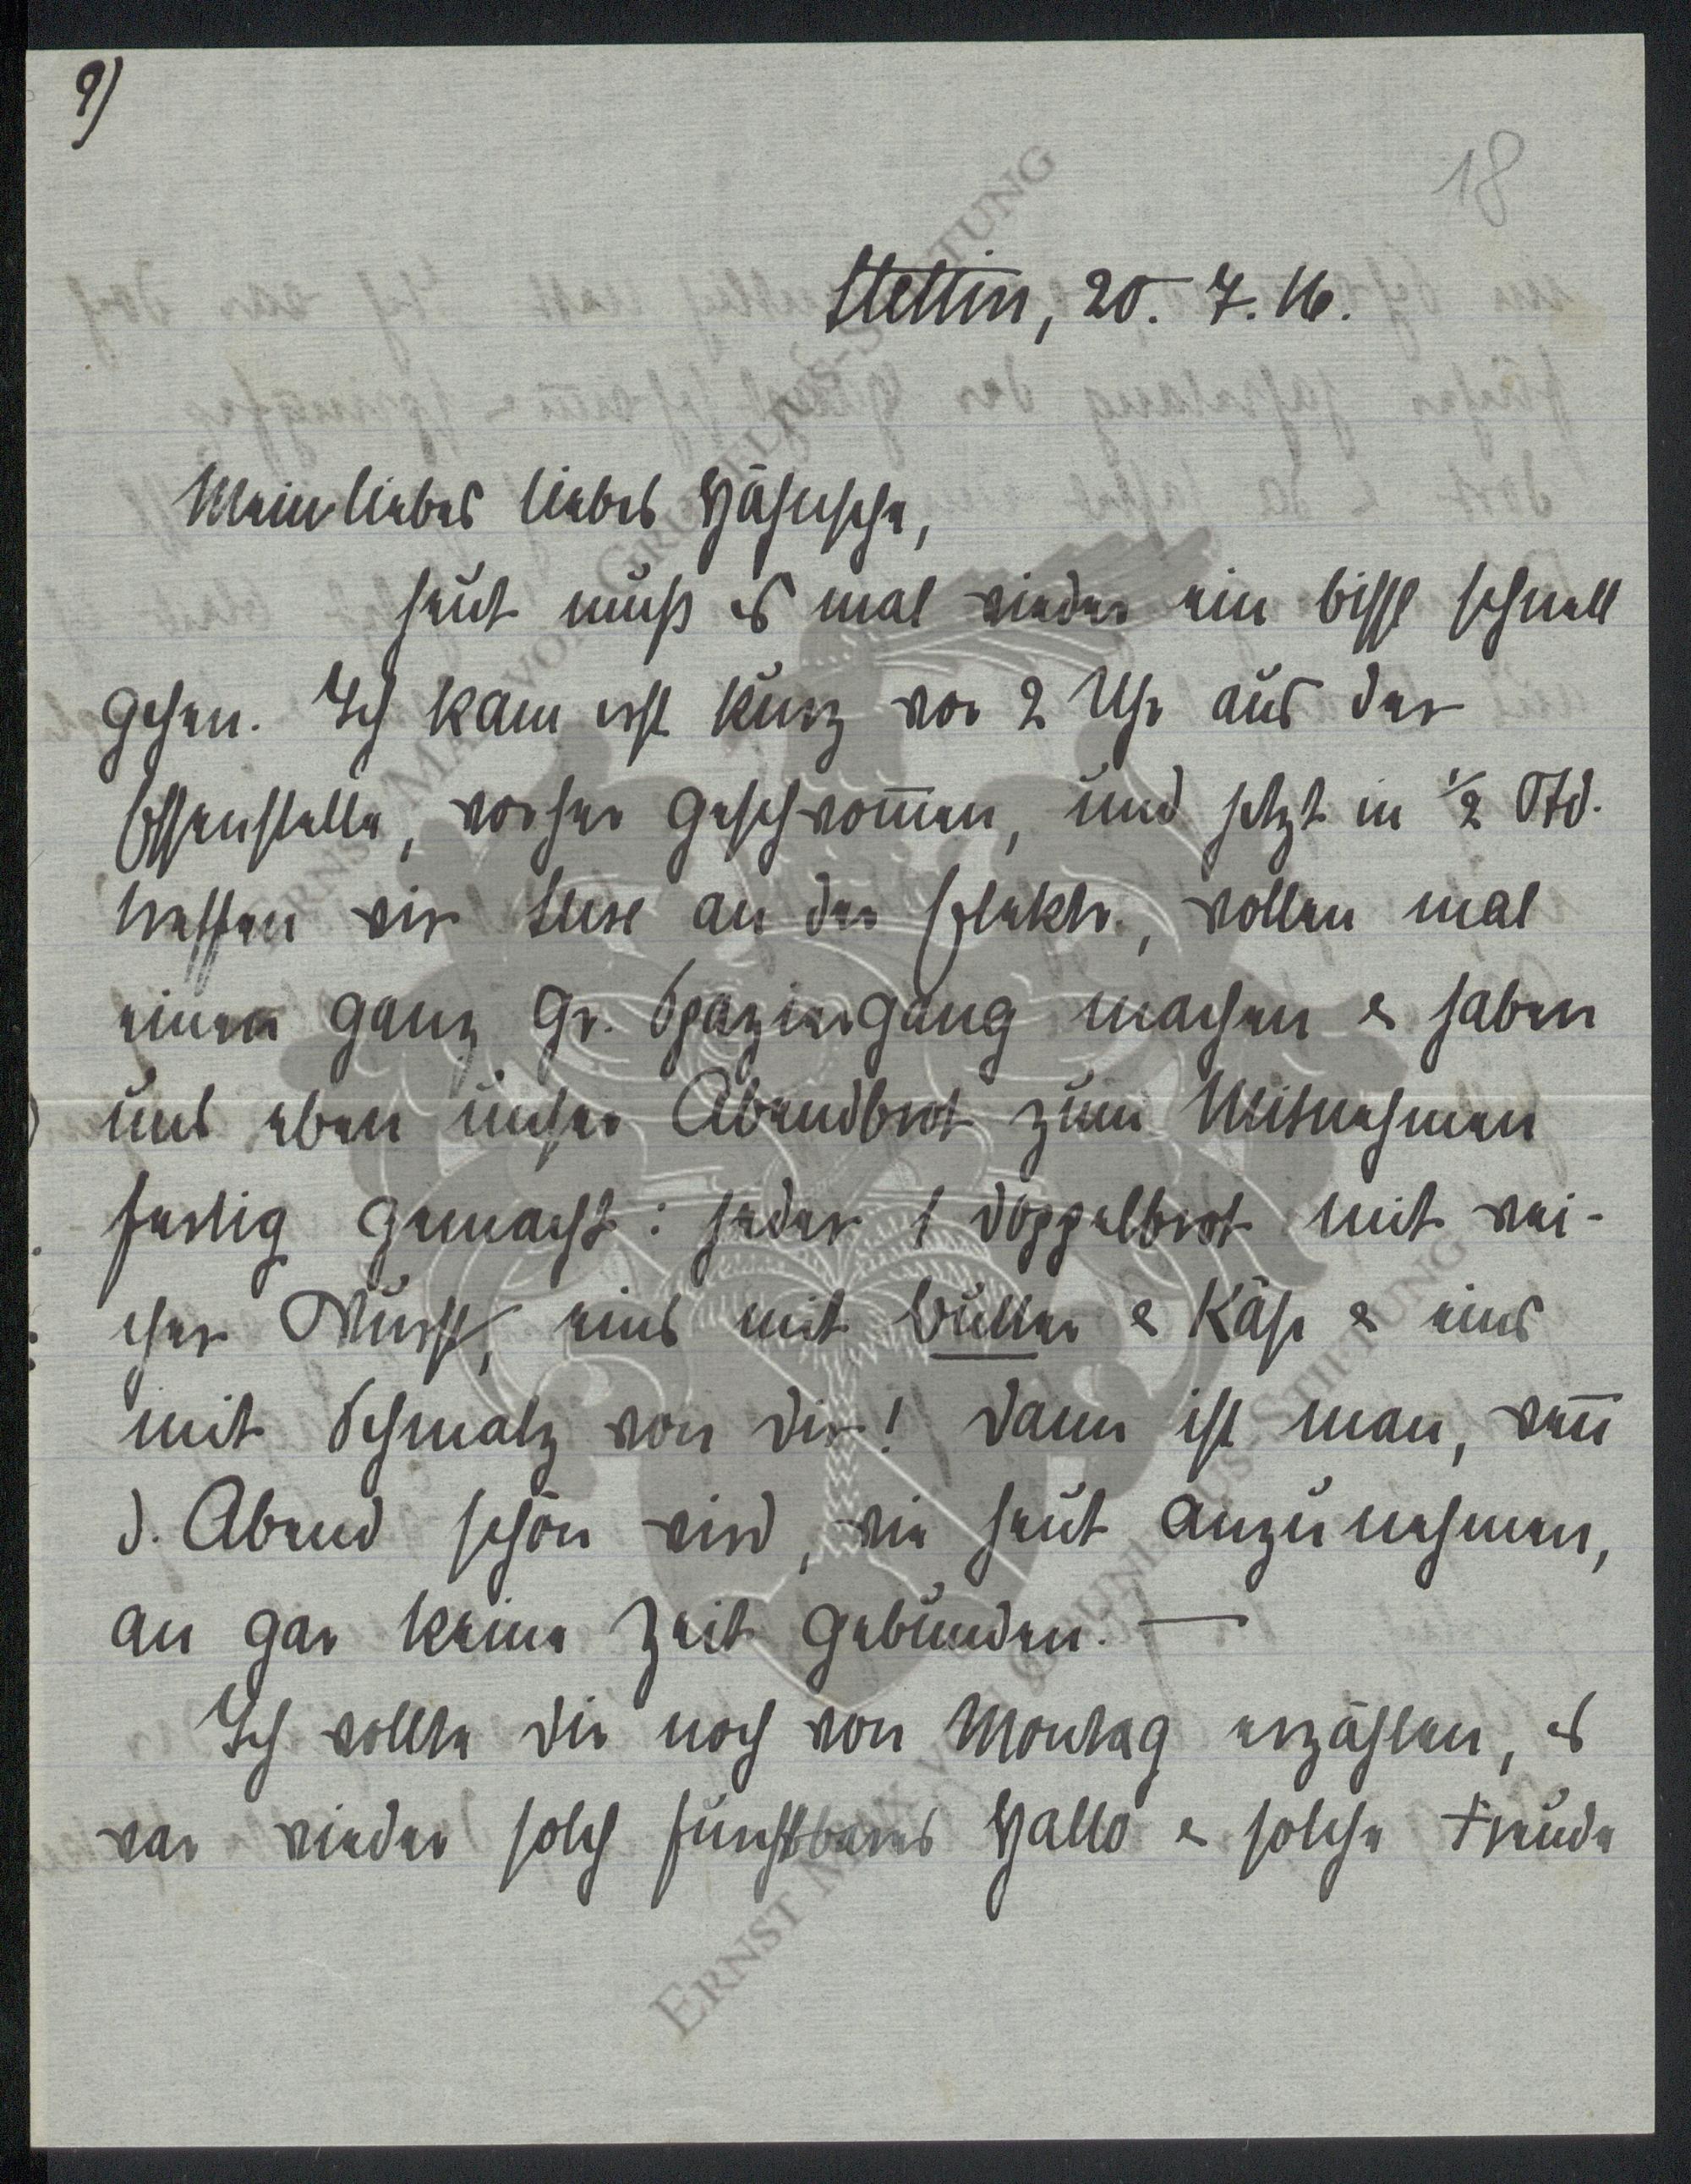 9)
18
Stettin, 20. 7. 16.
Mein liebes liebes Häschen,
heut muß es mal wieder ein bissl schnell
gehen. Ich kam erst kurz vor 2 Uhr aus der
Essenstelle, vorher geschwom̅en, und jetzt in ½ Std.
treffen wir an der Elektr., wollen mal
einen ganz gr. Spaziergang machen & haben
uns eben unser Abendbrot zum Mitnehmen
fertig gemacht: jeder 1 Doppelbrot mit wei-
cher Wurst, eins mit Butter & Käse & eins
mit Schmalz von Dir! Dann ist man, wen̅
d. Abend schön wird, wie heut anzunehmen,
an gar keine Zeit gebunden. —
Ich wollte Dir noch von Montag erzählen, es
war wieder solch furchtbares Hallo & solche Freude
ERNST MAX VON GRUNELIUS-STIFTUNG
ERNST MAX VON GRUNELIUS-STIFTUNG